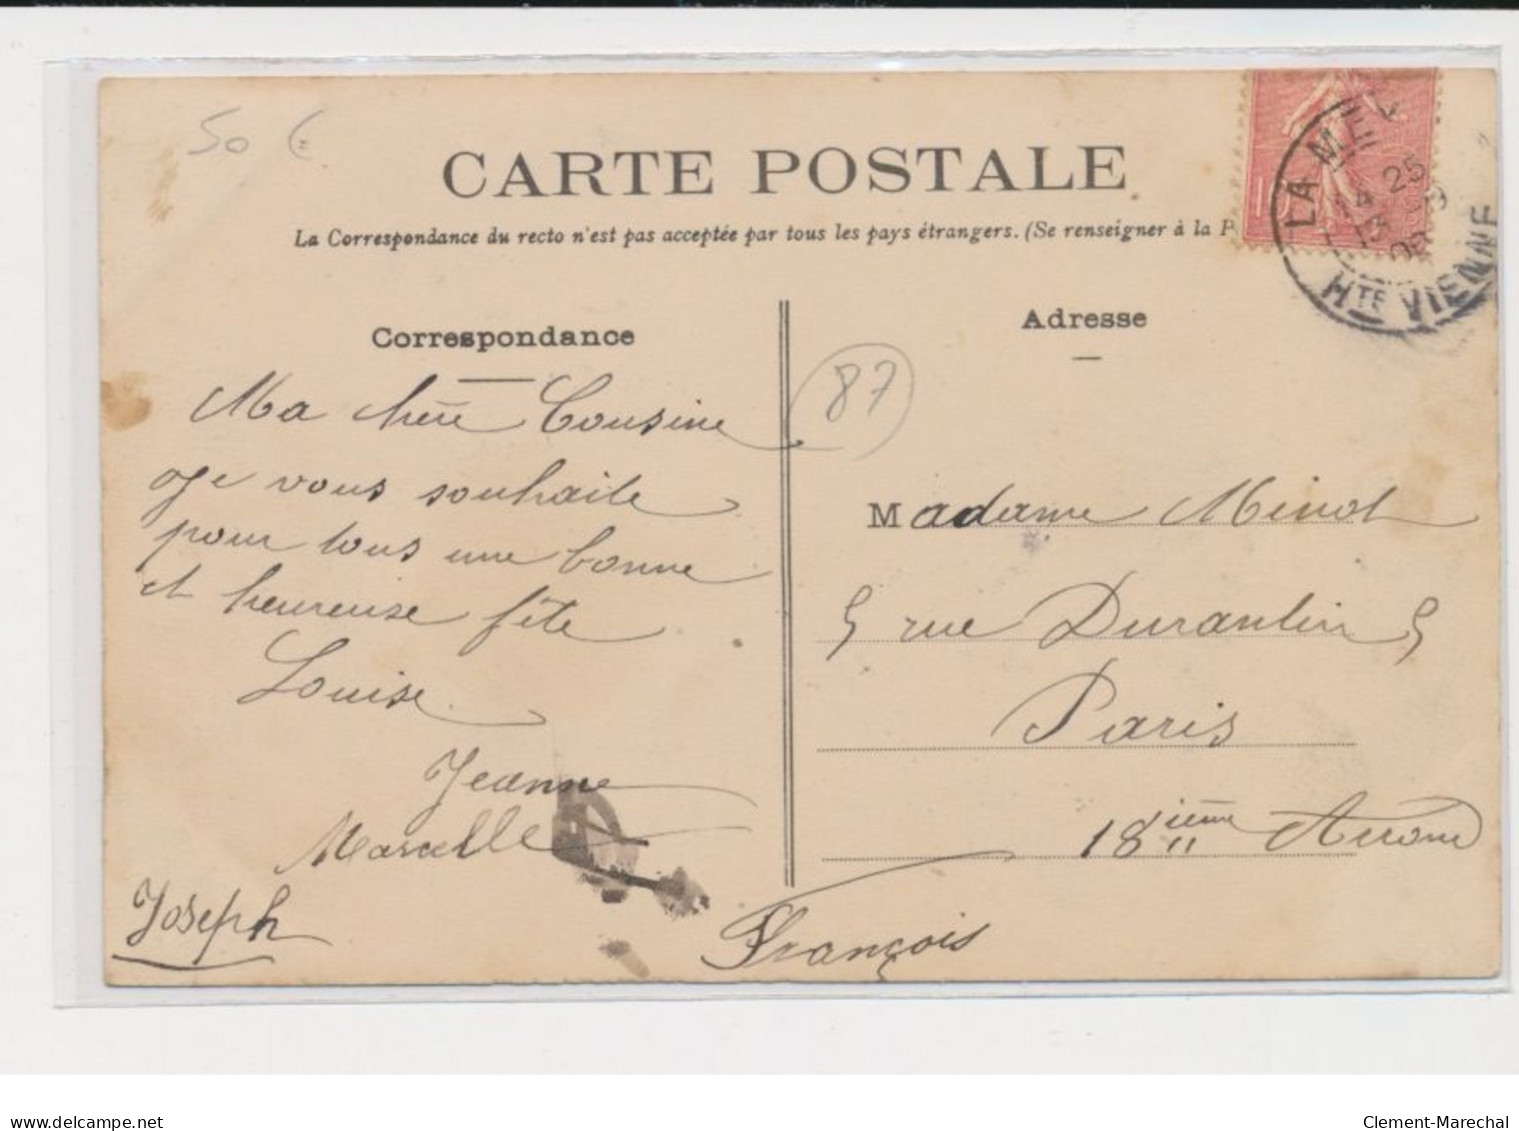 50 €
CARTE POSTALE
La Correspondance du recto n'est pas acceptée par tous les pays étrangers. (Se renseigner à la P
LA MEY
14 25
13
HTE VIENNE
Correspondance
Ma chère Cousine
Je vous souhaite
pour tous une bonne
et heureuse fête
Louise
Jeanne
Marcelle
Joseph
François
87
Adresse
Madame Minot
5 rue Durantin 5
Paris
18ième Arrond
delcampe.net
Clement-Marechal